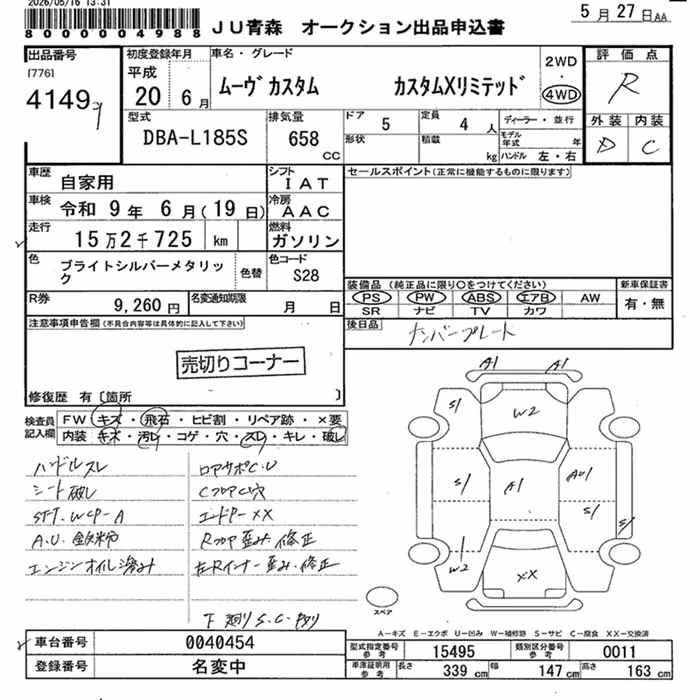 2026/05/16 13:31
8000004988
JU青森 オークション出品申込書
5月27日AA
出品番号
[776]
4149
初度登録年月
平成
20 6月
車名・グレード
ムーヴカスタム カスタムXリミテッド
2WD
・
4WD
評価点
R
外装 内装
D C
型式
DBA-L185S
排気量
658
CC
ドア
5
定員
4 人
形状
積載
kg
ディーラー・並行
モデル年式 年
ハンドル 左・右
車歴
自家用
シフト
IAT
車検
令和 9年 6月(19日)
冷房
AAC
走行
15万2千725 km
燃料
ガソリン
色
ブライトシルバーメタリック
色替
色コード
S28
R券
9,260円
名変通知期限
月 日
セールスポイント(正常に機能するものに限ります)
装備品(純正品に限り○をつけてください)
PS PW ABS エアB AW
SR ナビ TV カワ
新車保証書
有・無
後日品
ナンバープレート
注意事項申告欄(不具合内容等は具体的に記入して下さい)
売切りコーナー
修復歴 有〔箇所 〕
検査員
記入欄
FW キズ・飛石・ヒビ割・リペア跡・×要
内装・キズ・汚レ・コゲ・穴・スレ・キレ・破レ
ハンドルスレ
シート破レ
STT.WCP-A
A.U.
エンジンオイル滲み
ロアサポC.U
CフロアC穴
エンドP-XX
Rフロア歪み・修正
左Rインナー歪み・修正
下廻りS.C.
A1 A1
S1
W2
S1
A1
AU1
S1
S1
W2
XX
スペア
A-キズ E-エクボ U-凹み W-補修跡 S-サビ C-腐食 XX-交換済
車台番号
0040454
登録番号
名変中
型式指定番号
参考
15495
類別区分番号
参考
0011
車庫証明用
参考
長さ 339 cm 幅 147 cm 高さ 163 cm